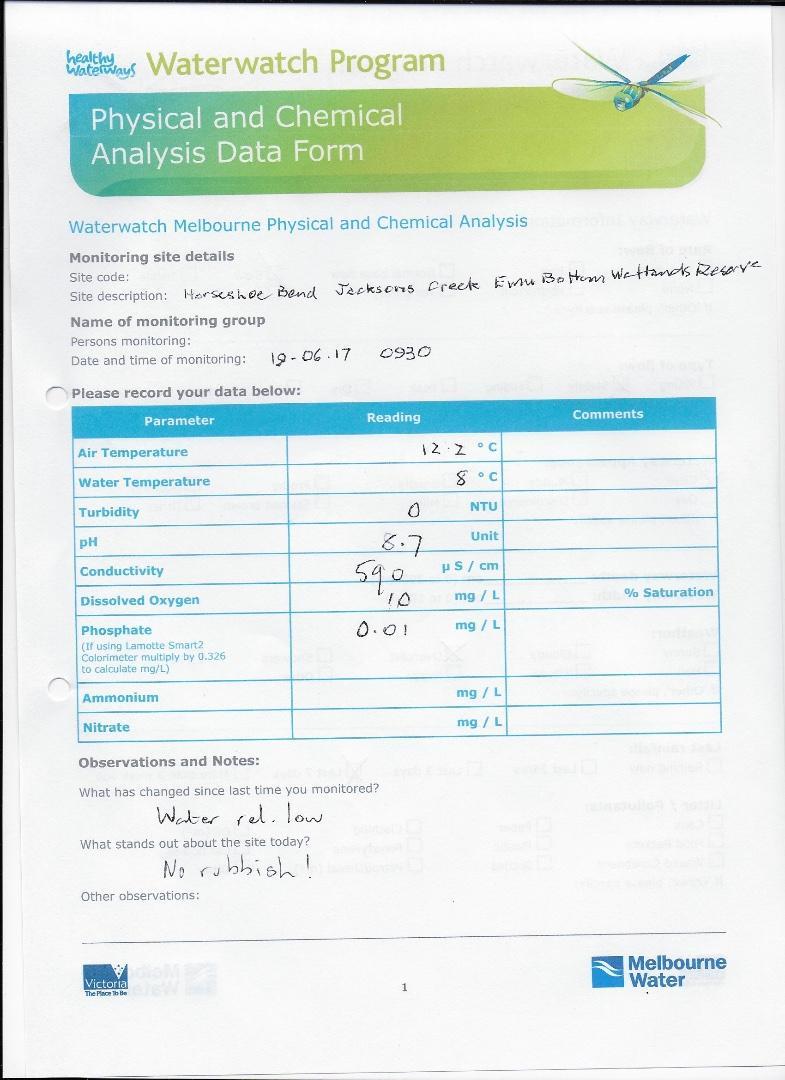 healthy waterways Waterwatch Program
Physical and Chemical
Analysis Data Form
Waterwatch Melbourne Physical and Chemical Analysis
Monitoring site details
Site code:
Site description: Horseshoe Bend Jacksons Creek Emu Bottom Wetlands Reserve
Name of monitoring group
Persons monitoring:
Date and time of monitoring: 19-06.17 0930
Please record your data below:
Parameter Reading Comments
Air Temperature 12.2 °C
Water Temperature 8 °C
Turbidity 0 NTU
pH 8.7 Unit
Conductivity 590 µS / cm
Dissolved Oxygen 10 mg / L % Saturation
Phosphate 0.01 mg / L
(If using Lamotte Smart2
Colorimeter multiply by 0.326
to calculate mg/L)
Ammonium mg / L
Nitrate mg / L
Observations and Notes:
What has changed since last time you monitored?
Water rel. low
What stands out about the site today?
No rubbish!
Other observations:
Victoria
The Place To Be
1
Melbourne
Water